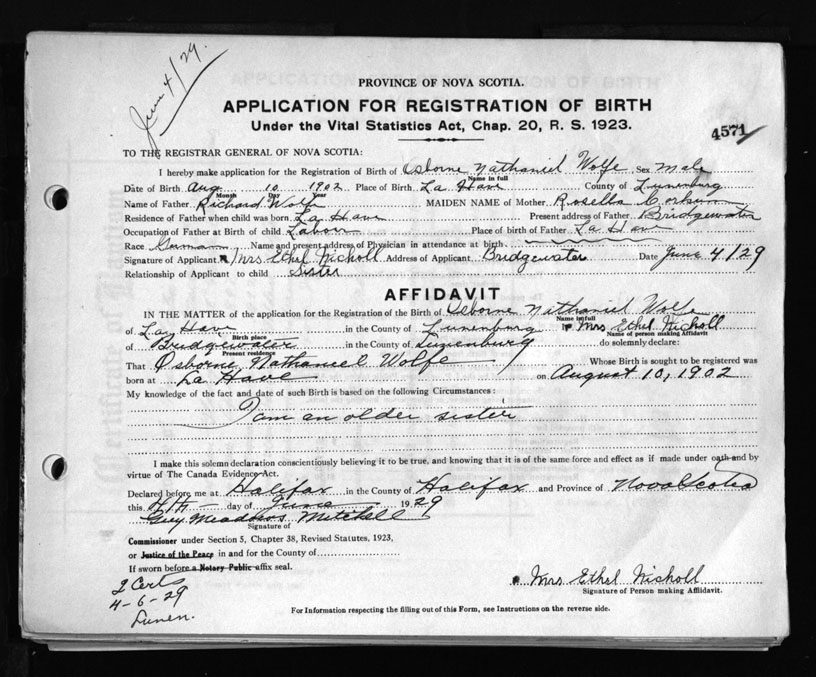 June 4/29.
PROVINCE OF NOVA SCOTIA.
APPLICATION FOR REGISTRATION OF BIRTH
Under the Vital Statistics Act, Chap. 20, R. S. 1923.
4571
TO THE REGISTRAR GENERAL OF NOVA SCOTIA:
I hereby make application for the Registration of Birth of Osborne Nathaniel Wolfe Sex Male
Name in full
Date of Birth Aug 10 1902 Place of Birth La Have County of Lunenburg
Month Day Year
Name of Father Richard Wolfe MAIDEN NAME of Mother Rosella Corkum
Residence of Father when child was born La Have Present address of Father Bridgewater
Occupation of Father at Birth of child Labour Place of birth of Father La Have
Race German Name and present address of Physician in attendance at birth
Signature of Applicant Mrs Ethel Nicholl Address of Applicant Bridgewater Date June 4/29
Relationship of Applicant to child Sister
AFFIDAVIT
IN THE MATTER of the application for the Registration of the Birth of Osborne Nathaniel Wolfe
Name in full
of La Have in the County of Lunenburg I Mrs Ethel Nicholl
Birth place Name of person making Affidavit
of Bridgewater in the County of Lunenburg do solemnly declare:
Present residence
That Osborne Nathaniel Wolfe Whose Birth is sought to be registered was
born at La Have on August 10, 1902
My knowledge of the fact and date of such Birth is based on the following Circumstances:
I am an older sister
I make this solemn declaration conscientiously believing it to be true, and knowing that it is of the same force and effect as if made under oath and by
virtue of The Canada Evidence Act.
Declared before me at Halifax in the County of Halifax and Province of Nova Scotia
this 4th day of June 1929
Guy Meadows Mitchell
Signature of
Commissioner under Section 5, Chapter 38, Revised Statutes, 1923,
or Justice of the Peace in and for the County of
If sworn before a Notary Public affix seal.
2 Certs
4-6-29
Lunen.
Mrs Ethel Nicholl
Signature of Person making Affidavit.
For Information respecting the filling out of this Form, see Instructions on the reverse side.